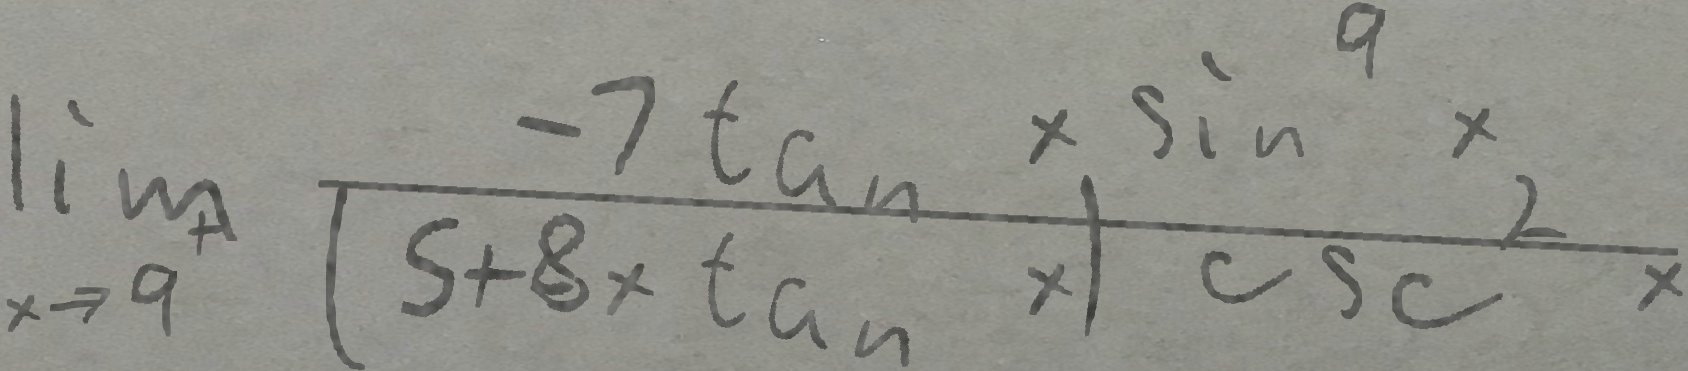 \lim_{x \to 9^+} \frac{-7 \tan x \sin^9 x}{(5+8x \tan x) \csc^2 x}